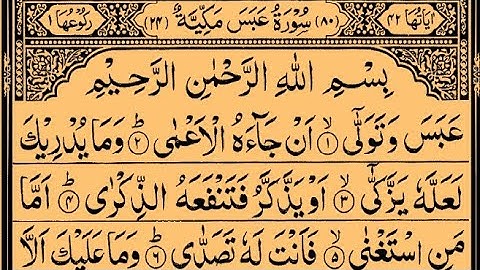 اٰيَاتُهَا ٤٢ (٨٠) سُوْرَةُ عَبَسَ مَكِّيَّةٌ (٢٤) رُكُوْعُهَا ١
بِسْمِ اللهِ الرَّحْمٰنِ الرَّحِيْمِ
عَبَسَ وَتَوَلّٰىٓ ۙ﴿١﴾ اَنْ جَآءَهُ الْاَعْمٰى ؕ﴿٢﴾ وَمَا يُدْرِيْكَ
لَعَلَّهٗ يَزَّكّٰىٓ ۙ﴿٣﴾ اَوْ يَذَّكَّرُ فَتَنْفَعَهُ الذِّكْرٰى ؕ﴿٤﴾ اَمَّا
مَنِ اسْتَغْنٰى ۙ﴿٥﴾ فَاَنْتَ لَهٗ تَصَدّٰى ؕ﴿٦﴾ وَمَا عَلَيْكَ اَلَّا